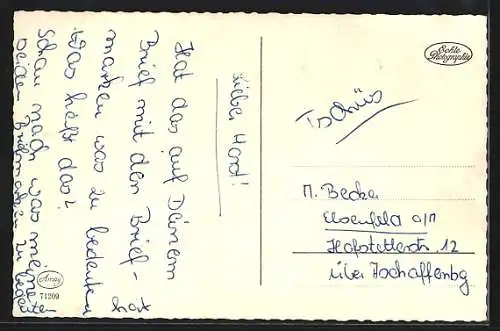 Lieber Hard!
Hat das auf Deinem
Brief mit den Brief-
marken was zu bedeuten
Was heißt das?
Schau nach was meine
beiden Briefmarken zu bedeuten
hat
Tschüs
M. Becker
Elsenfeld a/M
Hofstetterstr. 12
über Aschaffenbg
Echte
Photographie
71209